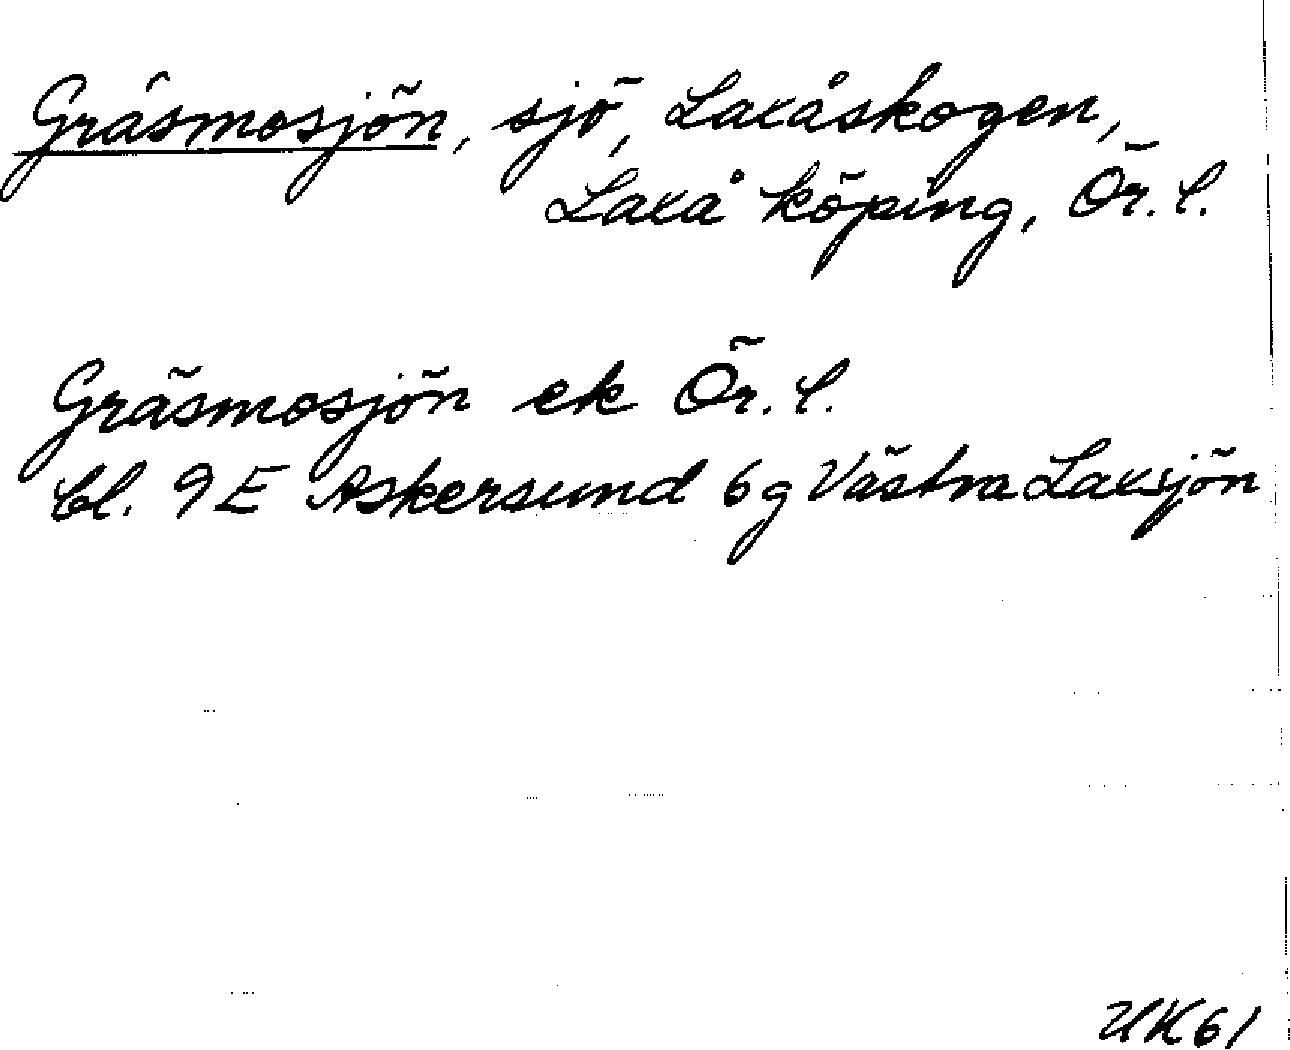 Gräsmosjön, sjö, Laxåskogen,
Laxå köping, Ör. l.
Gräsmosjön ek Ör. l.
bl. 9E Askersund 6g Västra Laxsjön
UK61